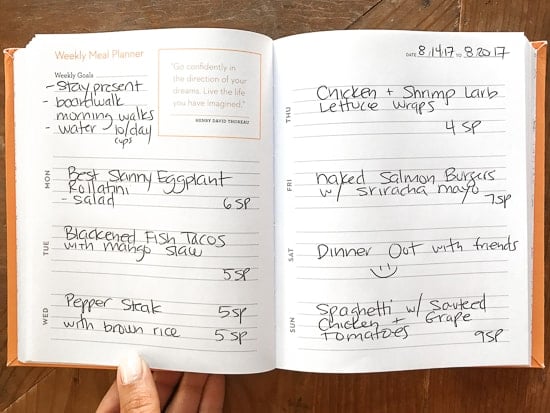 Weekly Meal Planner
Weekly Goals
- stay present
- boardwalk
morning walks
- water 10/day
cups
"Go confidently in
the direction of your
dreams. Live the life
you have imagined."
HENRY DAVID THOREAU
MON
Best Skinny Eggplant
Rollatini
- salad 6 SP
TUE
Blackened Fish Tacos
with mango slaw
5 SP
WED
Pepper Steak 5 SP
with brown rice 5 SP
DATE 8.14.17 TO 8.20.17
THU
Chicken + Shrimp Larb
Lettuce wraps
4 SP
FRI
naked Salmon Burgers
w/ sriracha mayo
7 SP
SAT
Dinner Out with friends
SUN
Spaghetti w/ Sauteed
Chicken + Grape
Tomatoes 9 SP